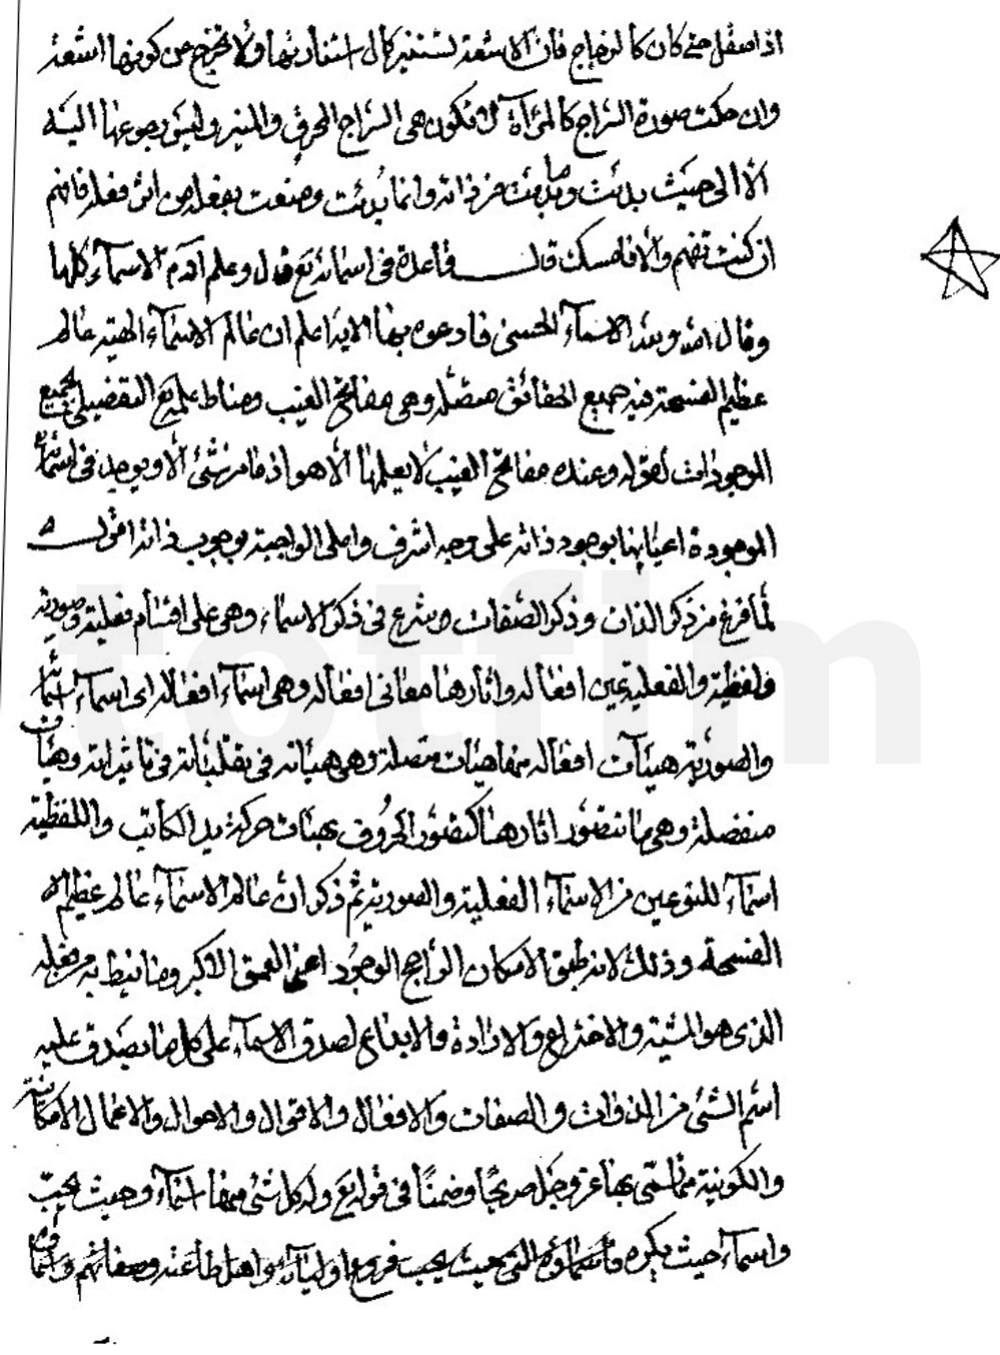 اذا صقل حتى كان كالزجاج فان الاشعة تستنير كمال استنارتها ولا تخرج عن كونها اشعة
وان حكت صورة السراج كالمرآة لا تكون هى السراج المحرق والمنير وليس رجوعها اليه
الا الى حيث بدئت وما بدئت من ذاته وانما بدئت وصنعت بفعله من اثر فعله فافهم
ان كنت تفهم والا فامسك قال قاعدة فى اسمائه تع قال وعلم آدم الاسماء كلها
وقال الله ولله الاسماء الحسنى فادعوه بها الاية اعلم ان عالم الاسماء الهية عالم
عظيم الفسحة فيه جميع الحقائق متصلة وهى مفاتيح الغيب ومناط علمه تع التفصيلى بجميع
الموجودات لقوله وعنده مفاتح الغيب لا يعلمها الا هو اذ ما من شئ الا ويوجد فى اسمائه
الموجودة اعيانها بوجود ذاته على وجه اشرف واعلى الواجبة بوجوب ذاته اقول
لما فرغ من ذكر الذات وذكر الصفات شرع فى ذكر الاسماء وهى على اقسام فعلية وصورية
ولفظية والفعلية عين افعاله واثارها معانى افعاله وهى اسماء افعاله اى اسماء اسمائه
والصورية هيئآت افعاله منها هيئات متصلة وهى هيئاته فى تقلباته فى تاثيراته وهيآت
منفصلة وهى ما تتصور اثارها كتصور الحروف بهيئات حركة يد الكاتب واللفظية
اسماء للنوعين من الاسماء الفعلية والصورية ثم ذكر ان عالم الاسماء عالم عظيم
الفسحة وذلك لانه طبق الامكان الراجح الوجود اعنى العمق الاكبر وما نيط به من فعله
الذى هو المشية والاختراع والارادة والابداع لصدق الاسماء على كل ما يصدق عليه
اسم الشئ من الذوات والصفات والافعال والاقوال والاحوال والاعمال الامكانية
والكونية مما سمى بها عز وجل صريحا وضمنا فى قوله تع وله كل شئ فمنها اسماء حيث يحب
واسماء حيث يكره فاسماؤه التى حيث يحب فروع اوليائه واهل طاعته وصفاتهم